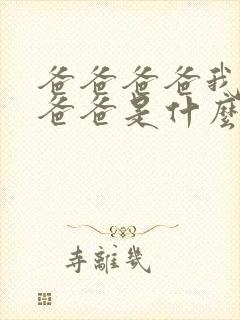 爸爸爸爸我
爸爸是什麼
寺離幾